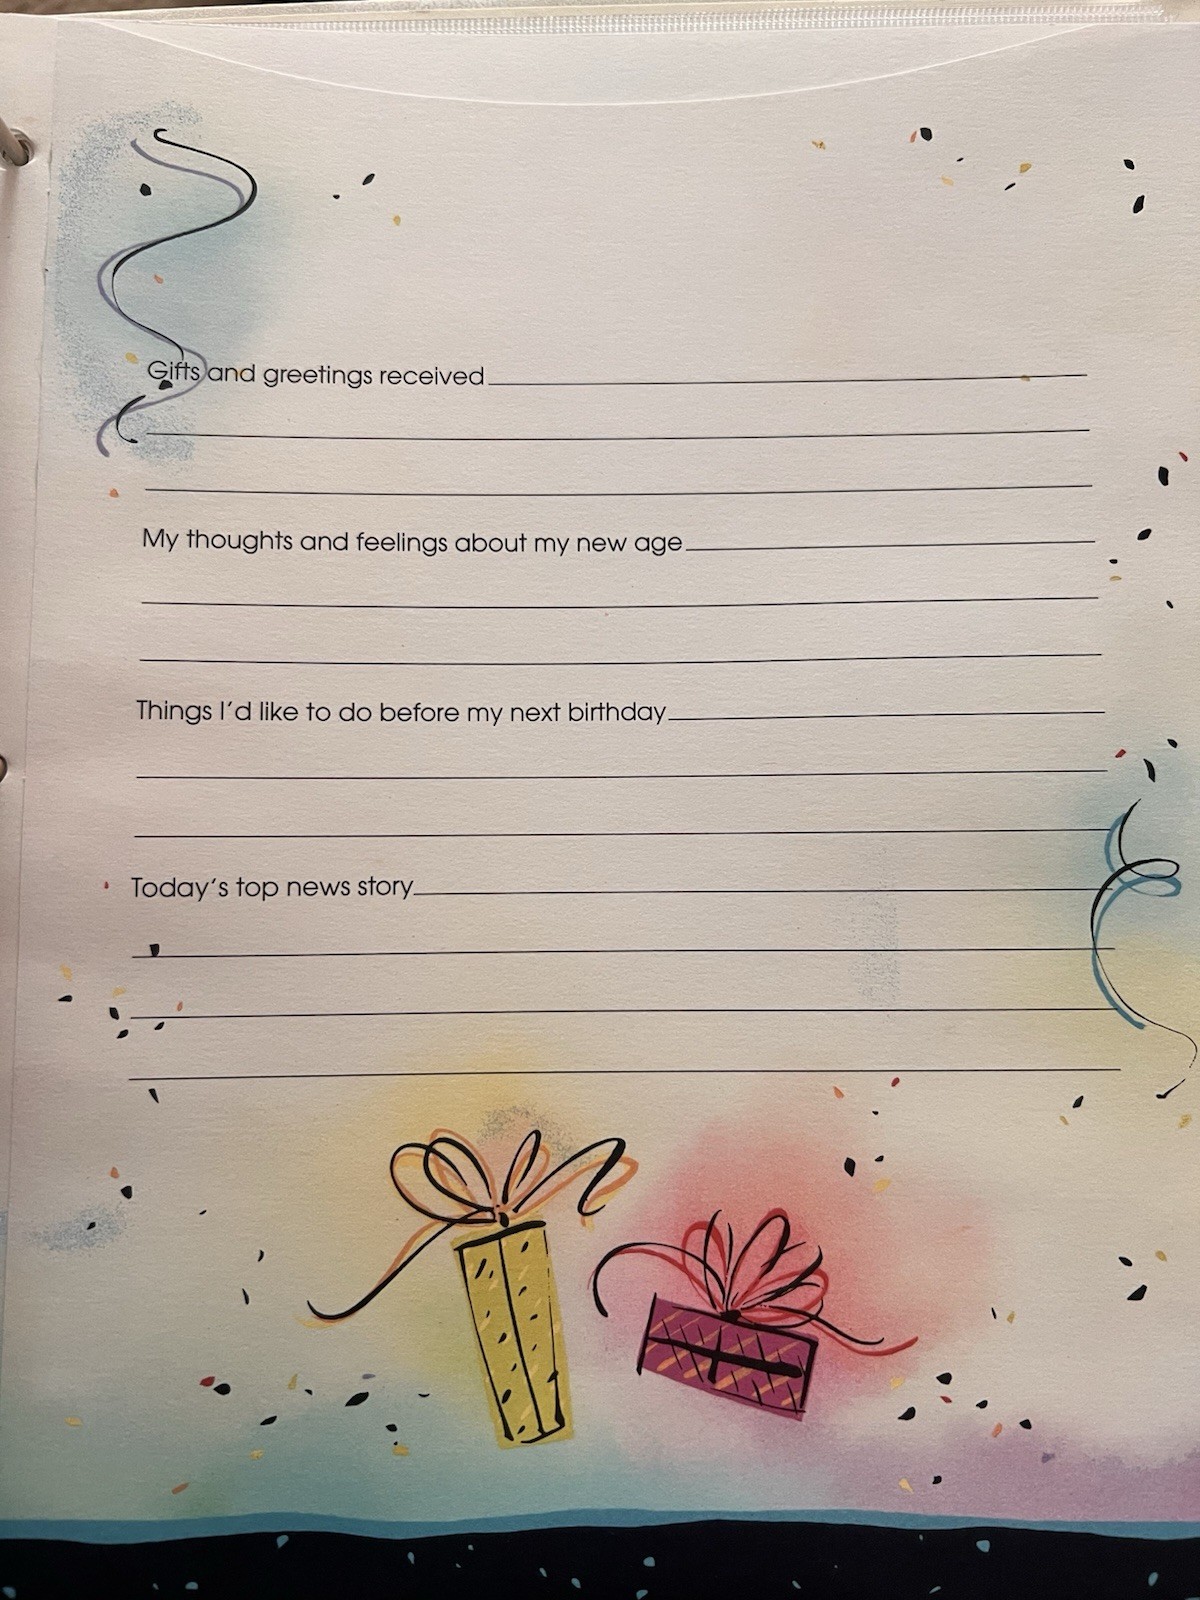 Gifts and greetings received
My thoughts and feelings about my new age
Things I'd like to do before my next birthday
Today's top news story